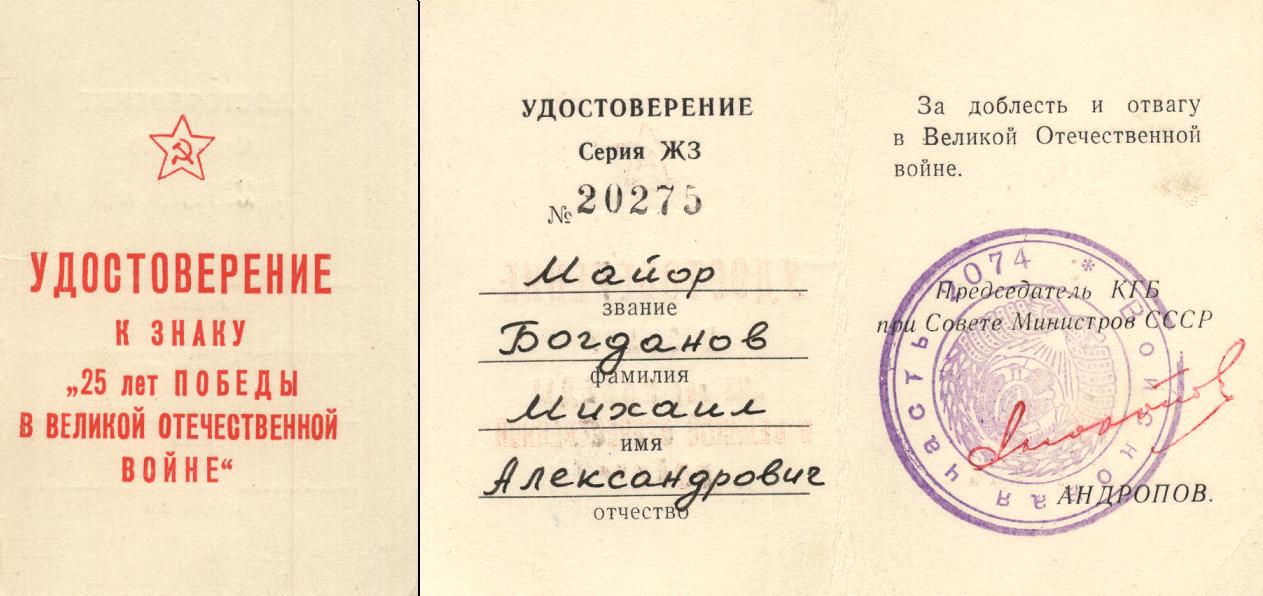 УДОСТОВЕРЕНИЕ
К ЗНАКУ
„25 лет ПОБЕДЫ
В ВЕЛИКОЙ ОТЕЧЕСТВЕННОЙ
ВОЙНЕ“
УДОСТОВЕРЕНИЕ
Серия ЖЗ
№ 20275
Майор
звание
Богданов
фамилия
Михаил
имя
Александрович
отчество
За доблесть и отвагу
в Великой Отечественной
войне.
Председатель КГБ
при Совете Министров СССР
АНДРОПОВ.
* Войсковая часть 2074